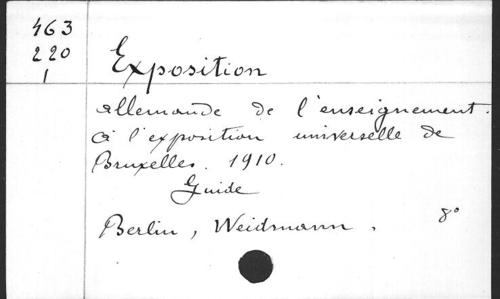 463
220
1
Exposition
allemande de l'enseignement.
à l'exposition universelle de
Bruxelles. 1910.
Guide
Berlin, Weidmann. 8°